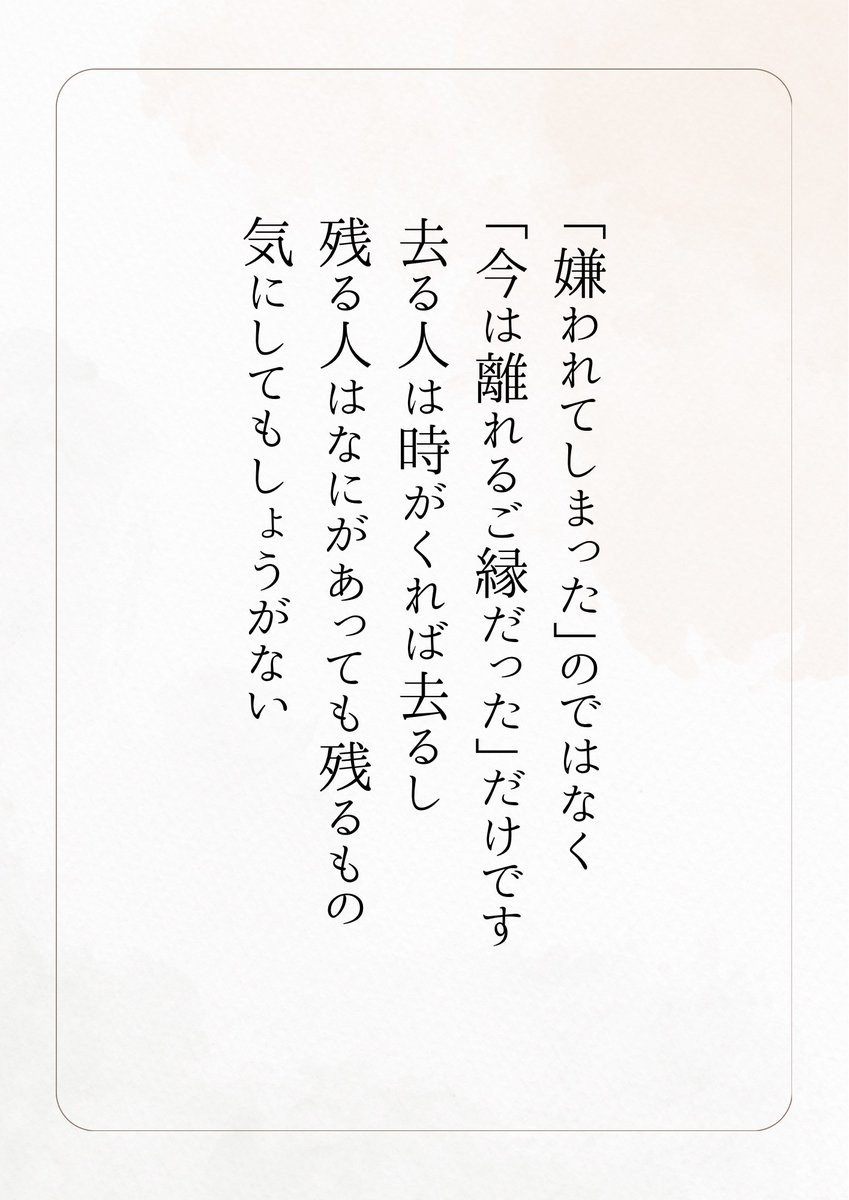 「嫌われてしまった」のではなく
「今は離れるご縁だった」だけです
去る人は時がくれば去るし
残る人はなにがあっても残るもの
気にしてもしょうがない